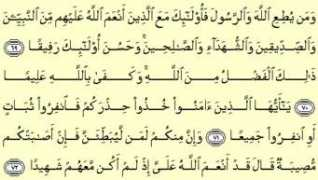 وَمَن يُطِعِ ٱللَّهَ وَٱلرَّسُولَ فَأُو۟لَـٰٓئِكَ مَعَ ٱلَّذِينَ أَنْعَمَ ٱللَّهُ عَلَيْهِم مِّنَ ٱلنَّبِيِّـۧنَ
وَٱلصِّدِّيقِينَ وَٱلشُّهَدَآءِ وَٱلصَّـٰلِحِينَ ۚ وَحَسُنَ أُو۟لَـٰٓئِكَ رَفِيقًا ٦٩
ذَٰلِكَ ٱلْفَضْلُ مِنَ ٱللَّهِ ۚ وَكَفَىٰ بِٱللَّهِ عَلِيمًا
٧٠ يَـٰٓأَيُّهَا ٱلَّذِينَ ءَامَنُوا۟ خُذُوا۟ حِذْرَكُمْ فَٱنفِرُوا۟ ثُبَاتٍ
أَوِ ٱنفِرُوا۟ جَمِيعًا ٧١ وَإِنَّ مِنكُمْ لَمَن لَّيُبَطِّئَنَّ فَإِنْ أَصَـٰبَتْكُم
مُّصِيبَةٌ قَالَ قَدْ أَنْعَمَ ٱللَّهُ عَلَىَّ إِذْ لَمْ أَكُن مَّعَهُمْ شَهِيدًا ٧٢